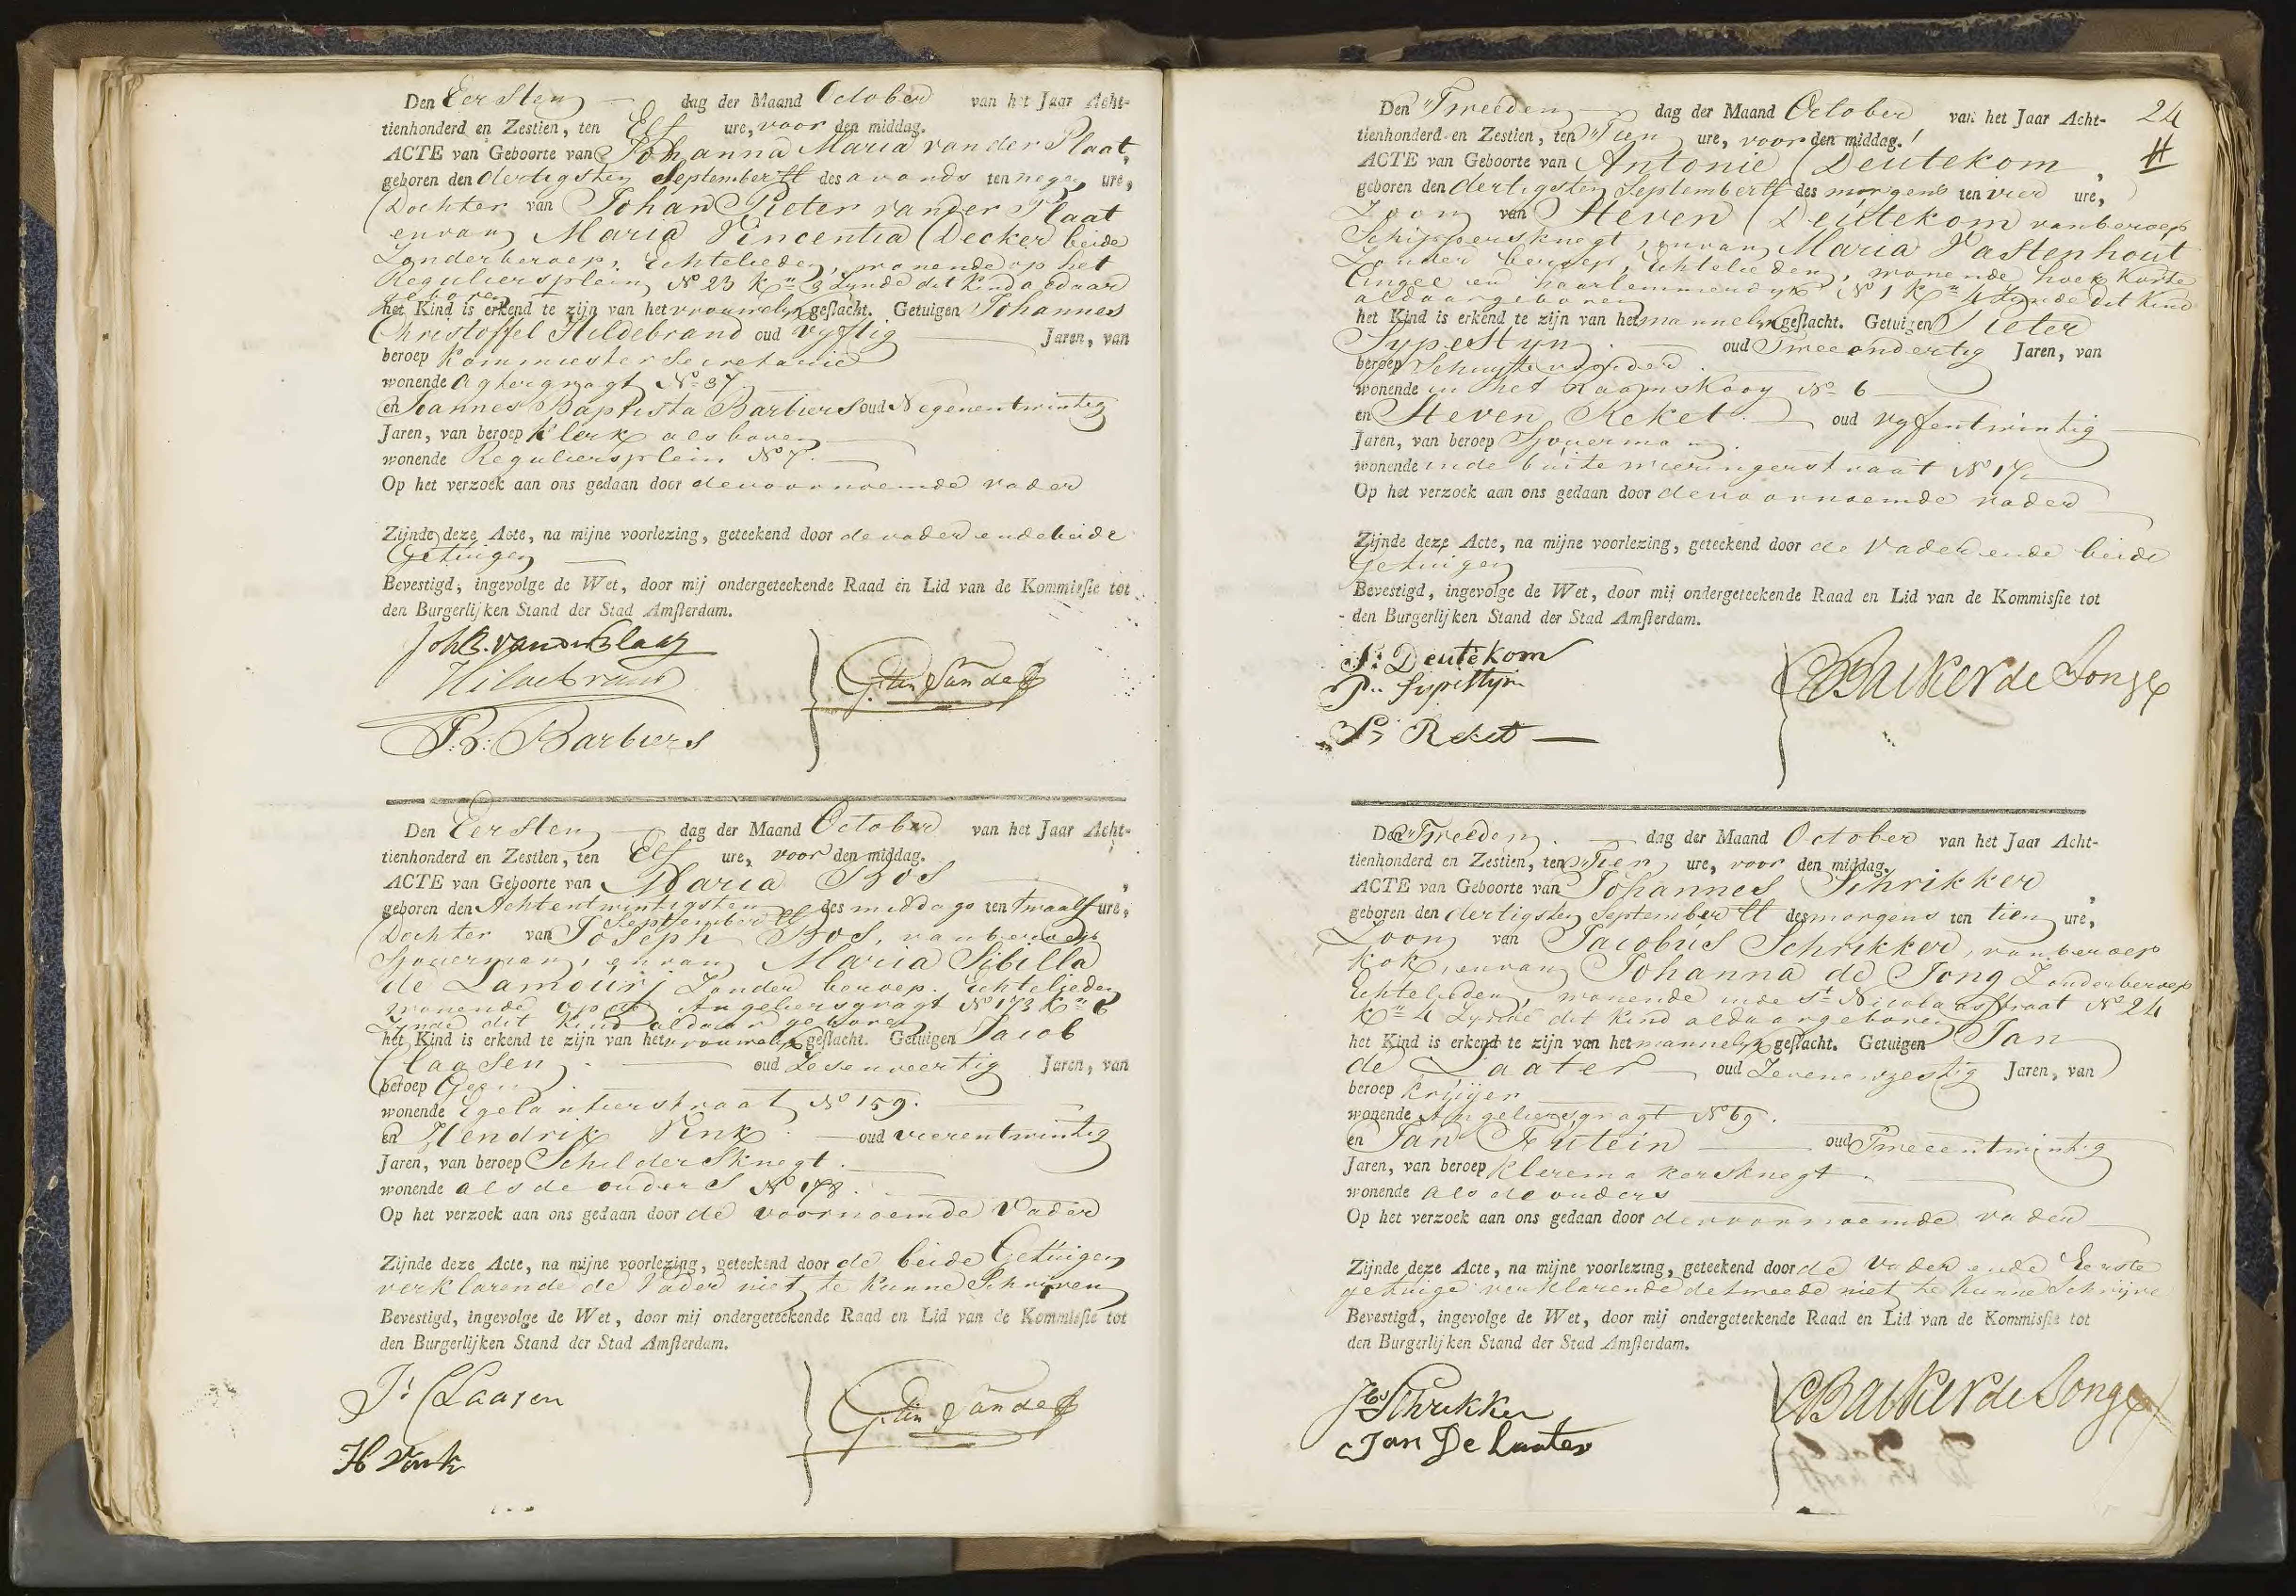 Den Eersten dag der Maand October van het Jaar Acht-
tienhonderd en Zestien, ten Elf ure, voor den middag.
ACTE van Geboorte van Johanna Maria van der Plaat,
geboren den dertigsten September ll des avonds ten negen ure,
Dochter van Johan Pieter van der Plaat
en van Maria Vincentia Decker beide
Zonder beroep, Echtelieden, wonende op het
Reguliersplein No 23 Kn 3 zynde dit Kind aldaar
geboren
het Kind is erkend te zijn van het vrouwelyk geslacht. Getuigen Johannes
Christoffel Hildebrand oud vyftig Jaren, van
beroep Kommies ter Secretarie
wonende Agtergragt No 37.
en Joannes Baptista Barbiers oud Negenentwintig
Jaren, van beroep Klerk als boven
wonende Reguliersplein No 7.
Op het verzoek aan ons gedaan door de voornoemde vader
Zijnde deze Acte, na mijne voorlezing, geteekend door de vader en de beide
Getuigen
Bevestigd, ingevolge de Wet, door mij ondergeteekende Raad en Lid van de Kommissie tot
den Burgerlijken Stand der Stad Amsterdam.
Hildebrand
J.B. Barbiers
Den Eersten dag der Maand October van het Jaar Acht-
tienhonderd en Zestien, ten Elf ure, voor den middag.
ACTE van Geboorte van Maria Bos,
geboren den Achtentwintigsten des middags ten twaalf ure,
September ll
Dochter van Joseph Bos, van beroep
Sjouwerman, en van Maria Sibilla
de Lamour, Zonder beroep. Echtelieden
wonende op de Angeliersgragt No 173 Kn 6
Zynde dit Kind aldaar geboren
het Kind is erkend te zijn van het vrouwelyk geslacht. Getuigen Jacob
Claasen oud Zesenveertig Jaren, van
beroep Geen
wonende Egelantierstraat No 159.
en Hendrik Vink oud vierentwintig
Jaren, van beroep Schildersknegt.
wonende als de ouders No 178.
Op het verzoek aan ons gedaan door de voornoemde Vader
Zijnde deze Acte, na mijne voorlezing, geteekend door de beide Getuigen
verklarende de Vader niet te kunne Schryven
Bevestigd, ingevolge de Wet, door mij ondergeteekende Raad en Lid van de Kommissie tot
den Burgerlijken Stand der Stad Amsterdam.
J: Claasen
H Vink
24
Den Tweeden dag der Maand October van het Jaar Acht-
tienhonderd en Zestien, ten Tien ure, voor den middag.
ACTE van Geboorte van Antonie Deutekom,
geboren den dertigsten September ll des morgens ten vier ure,
Zoon van Steven Deutekom van beroep
Schippersknegt, en van Maria Vastenhout
Zonder beroep, Echtelieden, wonende hoek Korte
Cingel en Haarlemmerdyk No 1 Kn 4 Zynde dit Kind
aldaar geboren
het Kind is erkend te zijn van het mannelyk geslacht. Getuigen Pieter
Sypestyn oud Tweeendertig Jaren, van
beroep Schuytevoerder
wonende in het Raamskooy No 6
en Steven Reket oud vyfentwintig
Jaren, van beroep Sjouerman.
wonende in de buite wieringerstraat No 17
Op het verzoek aan ons gedaan door de voornoemde vader
Zijnde deze Acte, na mijne voorlezing, geteekend door de Vader en de beide
Getuigen
Bevestigd, ingevolge de Wet, door mij ondergeteekende Raad en Lid van de Kommissie tot
den Burgerlijken Stand der Stad Amsterdam.
S: Deutekom
P: Sypestyn
S: Reket
Backer de Jonge
Den Tweeden dag der Maand October van het Jaar Acht-
tienhonderd en Zestien, ten Tien ure, voor den middag.
ACTE van Geboorte van Johannes Schrikker,
geboren den dertigsten September ll des morgens ten tien ure,
Zoon van Jacobus Schrikker, van beroep
Kok, en van Johanna de Jong Zonder beroep
Echtelieden, wonende in de St Nicolaasstraat No 24
Kn 4 Zynde dit Kind aldaar geboren
het Kind is erkend te zijn van het mannelyk geslacht. Getuigen Jan
de Laater oud Zevenenzestig Jaren, van
beroep Kruijer
wonende Angeliersgragt No 69.
en Jan Feütein oud Tweeentwintig
Jaren, van beroep Kleremakersknegt.
wonende als de ouders
Op het verzoek aan ons gedaan door de voornoemde vader
Zijnde deze Acte, na mijne voorlezing, geteekend door de Vader en de Eerste
getuige verklarende de tweede niet te kunne Schrijve
Bevestigd, ingevolge de Wet, door mij ondergeteekende Raad en Lid van de Kommissie tot
den Burgerlijken Stand der Stad Amsterdam.
Jbs Schrikker
Jan De Laater
Backer de Jonge